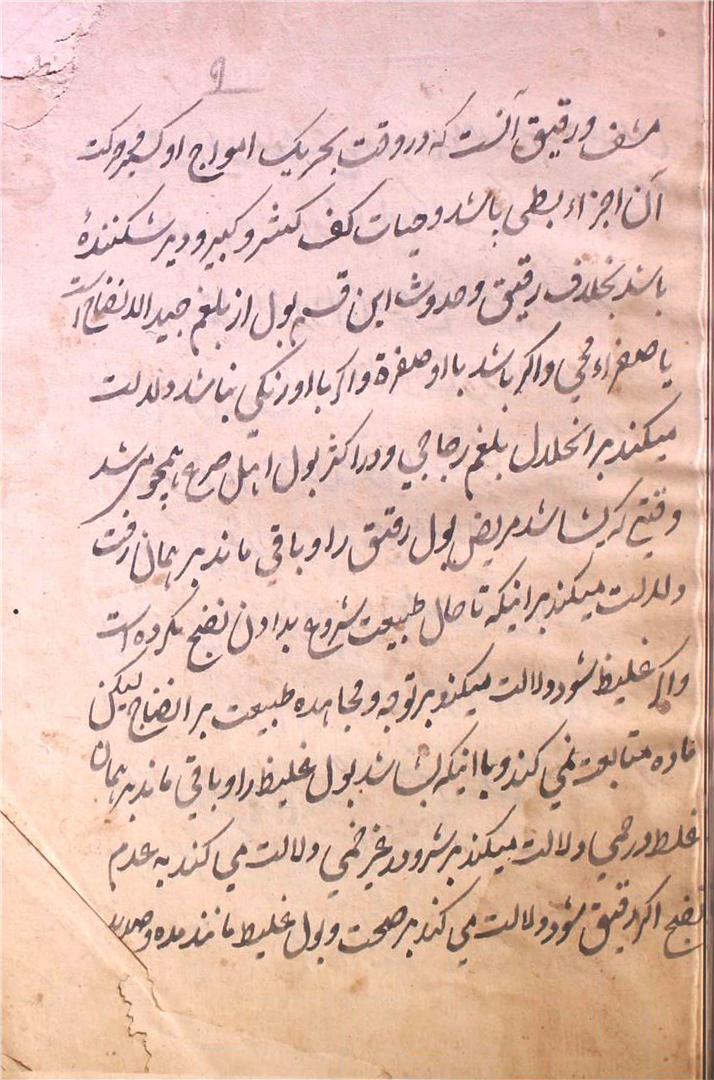 ۹
مشف و رقیق آنست که در وقت تحریک امواج او کبیر و حرکت
آن اجزاء بطی باشد و حبات کف کثیر و کبیر و دیر شکننده
باشد بخلاف رقیق و حدوث این قسم بول از بلغم جید الانضاج است
یا صفراء محی و اگر باشد با او صفرة و اگر با او رنگی نباشد دلالت
میکند بر انحلال بلغم زجاجی و در اکثر بول اهل صرع همچو می باشد
وقتیکه بشاشد مریض بول رقیق را و باقی ماند بر همان رقت
دلالت میکند بر اینکه تا حال طبیعت شروع بدادن نضج نکرده است
و اگر غلیظ شود دلالت میکند بر توجه و مجاهده طبیعت بر انضاج لیکن
ماده متابعت نمی کند و با اینکه بشاشد بول غلیظ را و باقی ماند بر همان
غلظ در حمی دلالت میکند بر شر و در غیر حمی دلالت می کند به عدم
نضج اگر رقیق شود دلالت می کند بر صحت و بول غلیظ مانند مده و صدید